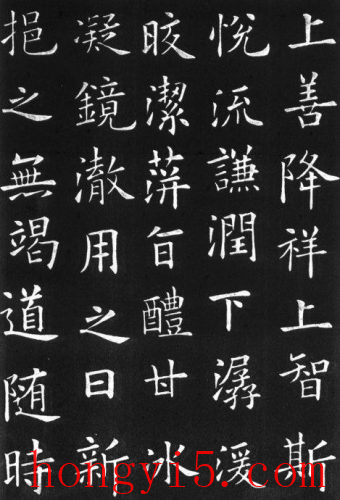 上善降祥上智斯
悅流謙潤下潺湲
皎潔蓱旨醴甘冰
凝鏡澈用之日新
挹之無竭道随時
hongyi5.com